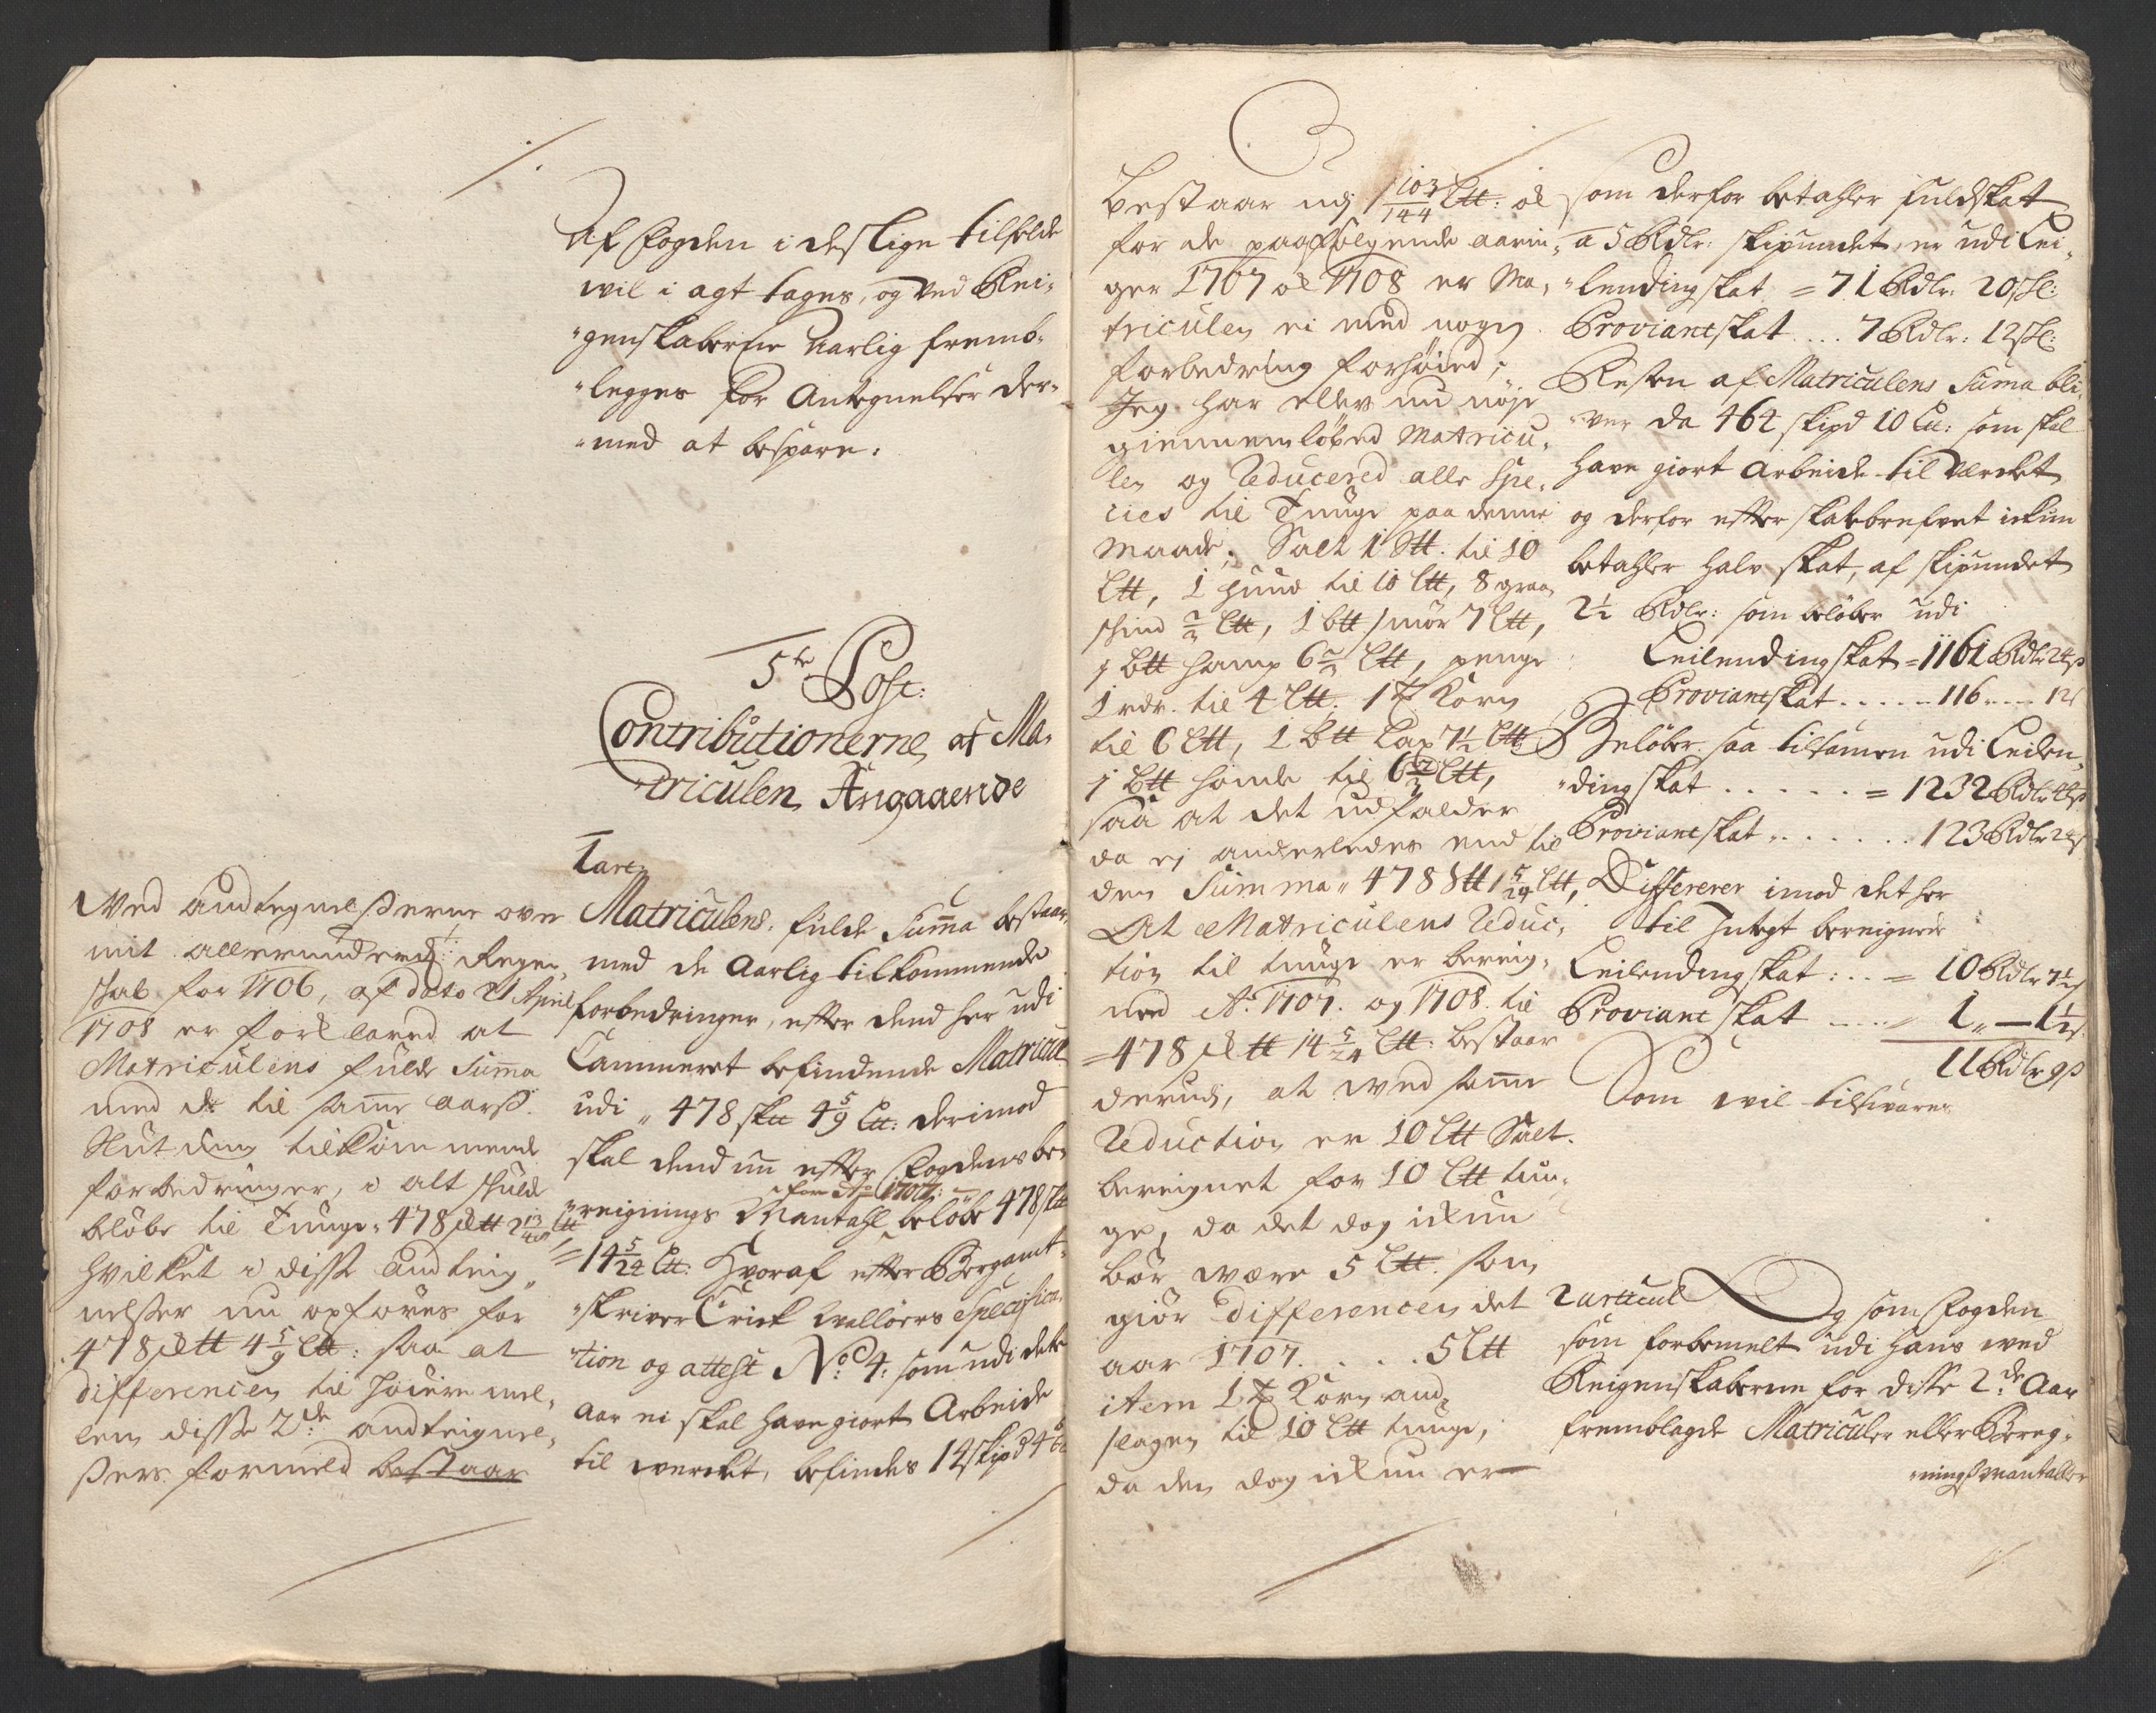 Af Fogden i deslige tilfelde
vil i agt tages, og ved Rei¬
"genskaberne Aarlig fremb¬
"legges for Antegnelser der¬
"med at bespare.
5te Post:
Contributionerne af Ma¬
triculen Angaaende
Matriculens fulde Suma bestaar
med de Aarlig tilkommende
forbedringer, efter dend her udi
Cammeret befindende Matricul
udi " 478 sklt 4 5/9 Ltt: derimod
skal dend nu efter Fogdens be¬
for Ao 1707:
"reignings Mantahl beløbe 478 sk
=14 5/24 Ltt. Hvoraf efter Bergamt¬
"skriver Erick specifica¬
"tion og attest No: 4: som udi dette
aar ei skal have giort Arbeide
til verket, befindes 14 skipd 4
Ved andtegnelserne over
mit allerunderd: Regen¬
skab for 1706, af dato 21 April
1708 er forklared at
Matriculens fulde Summa
med de til same aars
Slutning tilkommende
forbedringer, i alt skulde
beløbe til Tunge " 478 2 13/48 Ltt
hvilket i disse andteig¬
nelser nu opføres for
478 4 5/9 Ltt: saa at
differencen til høiere mel¬
lem disse 2de andteignel¬
sers formeld bestaar
bestaar udj 1 103/144 Ltt: og
for de paafølgende aarin¬
ger 1707 og 1708 er Ma¬
triculen ei med nogen
forbedring forhøied,
Jeg har ellers nu nøje
giennemløbed Matricu¬
len og reducered alle Spe¬
cies til Tunge paa denne
maade. Salt 1 til 10
Ltt, 1 hund til 10 Ltt, 8 graa
skind 2/3 Ltt, 1 btt smør 7 Ltt,
1 btt hamp 6 2/3 Ltt, penge
1 rdr. til 4 Ltt. 1 Korn
til 6 Ltt, 1 btt Lax 7 1/2 Ltt
1 btt til 6 2/3 Ltt,
saa at det udfalder
da ej anderledes end til
den Summa " 478 1 5/24 Ltt,
At Matriculens reduc¬
tion til tunge er bereig¬
ned Ao 1707. og 1708. til
=478 14 5/24 Ltt: bestaar
derudj, at ved same
reduction er 10 Ltt Salt
bereignet for 10 Ltt tun¬
ge, da det dog ickun
bør være 5 Ltt. som
giør differencen det
aar 1707. . . . . 5 Ltt
item 1 Korn and¬
slagen til 10 Ltt tunge,
da den dog ickun er
som derfor betahler fuldskat
a 5 Rdlr: skipundet, er udi Lei¬
"lending skat = 71 Rdlr: 20 sk:
Proviantskat . . . 7 Rdlr: 12 sk:
Resten af Matriculens Suma bli¬
"ver da 464 skipd 10 Ltt: som skal
have giort Arbeide til Værcket
og derfor efter skatebrefvet ickun
betahler halv skat, af skipundet
2 1/2 Rdlr: som beløber udi
Leilendingskat = 1161 Rdlr 24 s
Proviantskat . . . . . 116 . . . 12 s
Beløber saa tilsamen udi Leilen¬
"ding skat . . . . . = 1232 Rdlr 44 s
Proviantskat . . . . . . 123 Rdlr 24 s
Differerer imod det her
til Indtegt beregnede
Leilendingskat: . . = 10 Rdlr 7 1/2 s
Proviantskat . . . . 1 " — 1 1/2 s.
11 Rdlr 9 s
Som vil tilsvares
Og som Fogden
som forbemelt udi hans ved
Reigenskaberne for disse 2de Aar
fremblagde Matricul eller Bereg¬
"nings mantaller